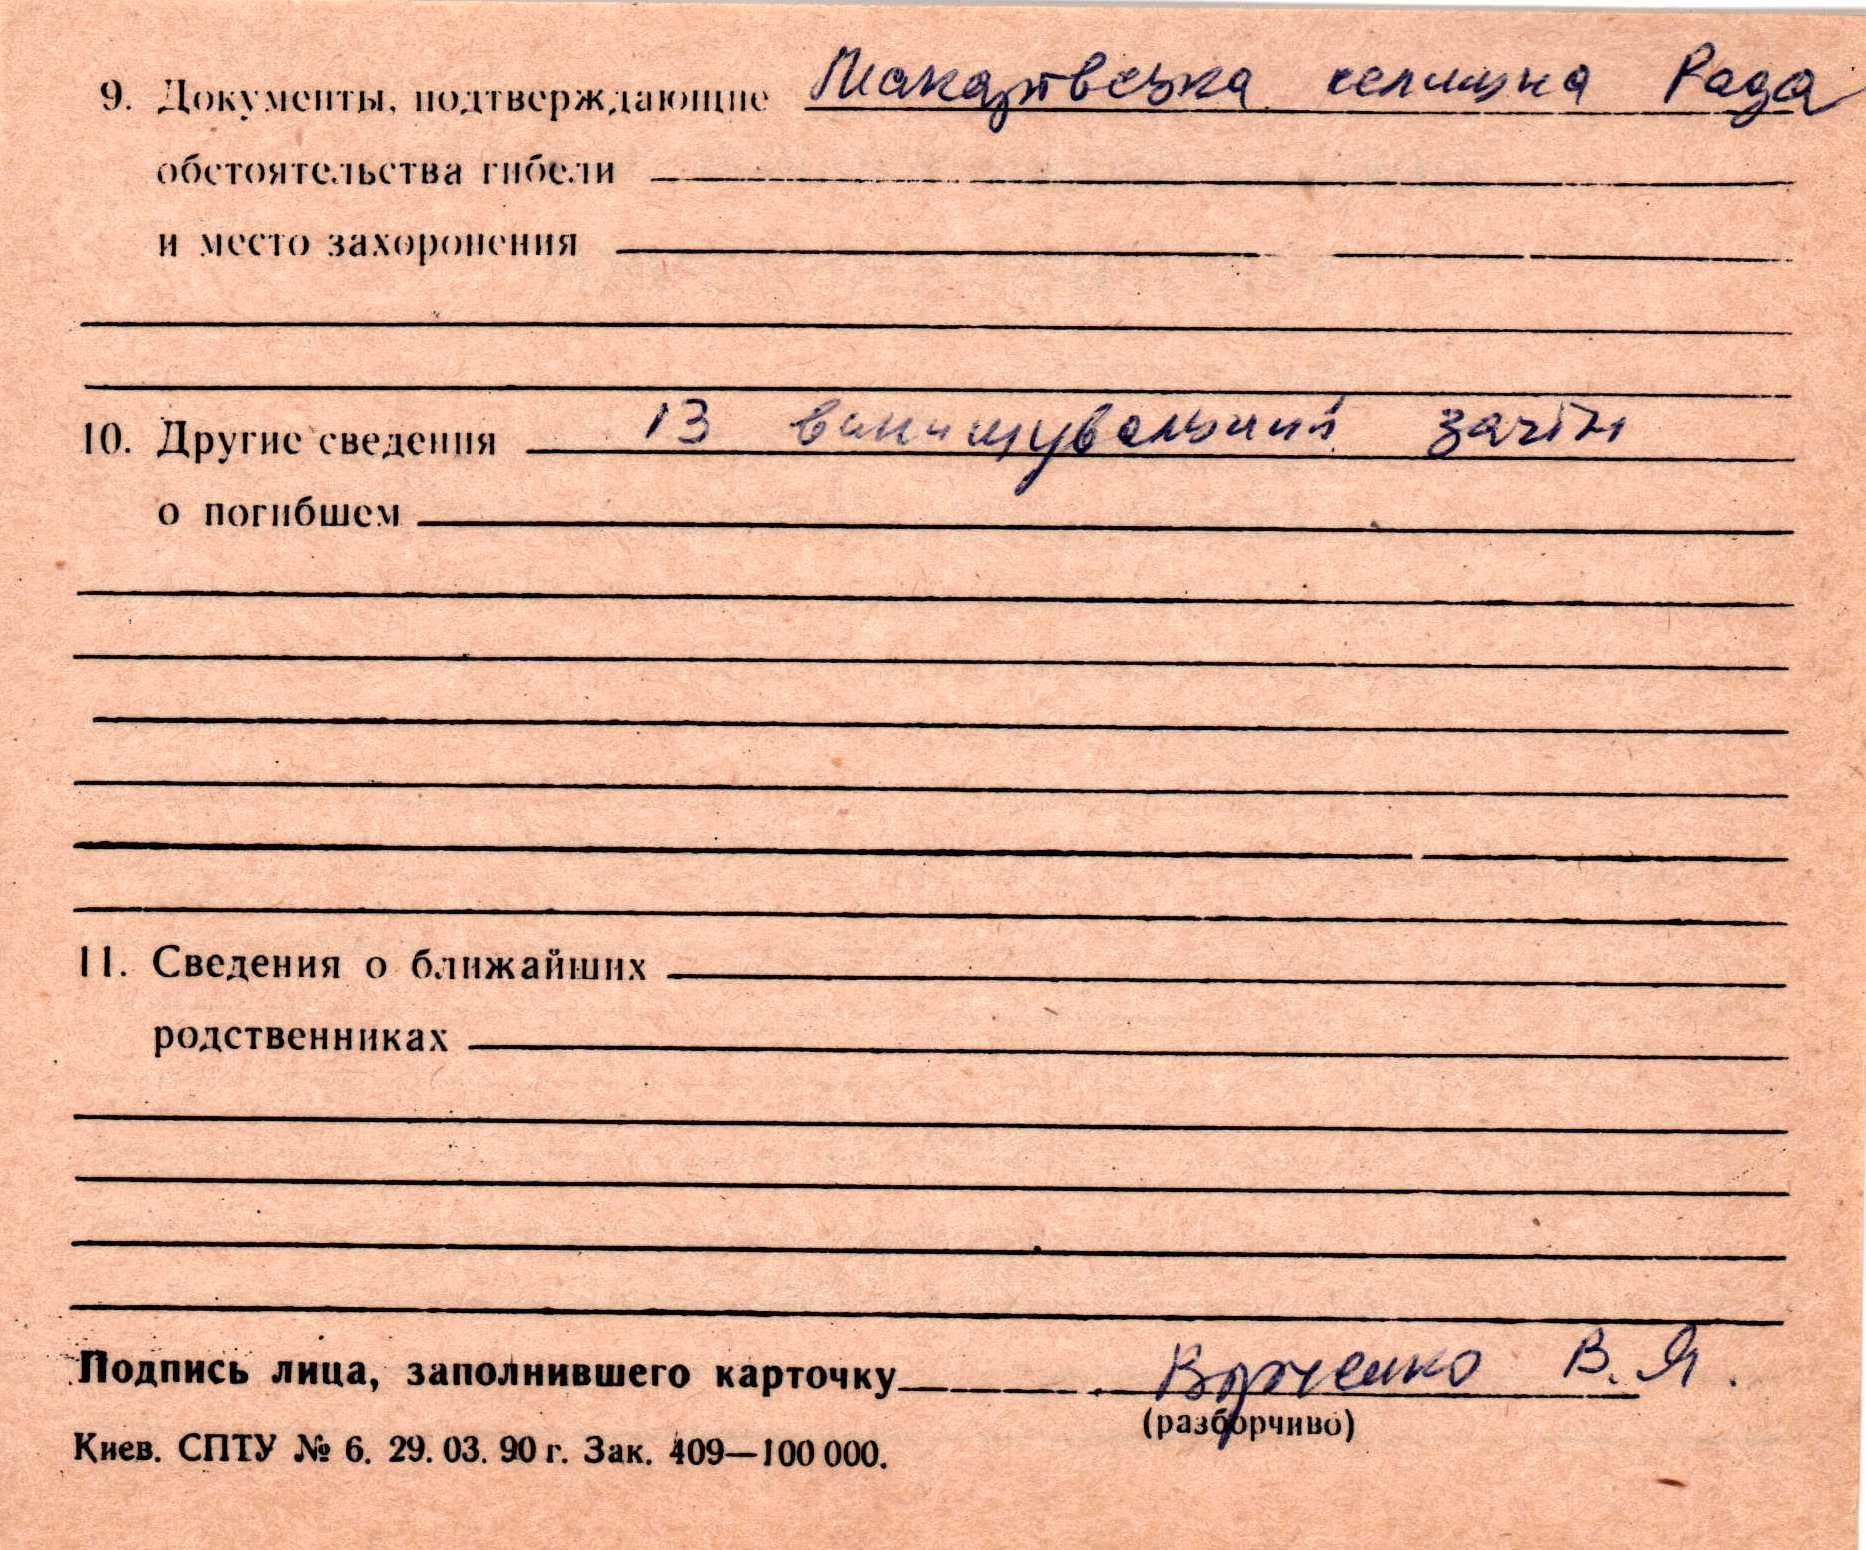 9. Документы, подтверждающие Макарівська селищна Рада
обстоятельства гибели
и место захоронения
10. Другие сведения 13 винищувальний загін
о погибшем
11. Сведения о ближайших
родственниках
Подпись лица, заполнившего карточку В. Я.
(разборчиво)
Киев. СПТУ № 6. 29. 03. 90 г. Зак. 409—100 000.